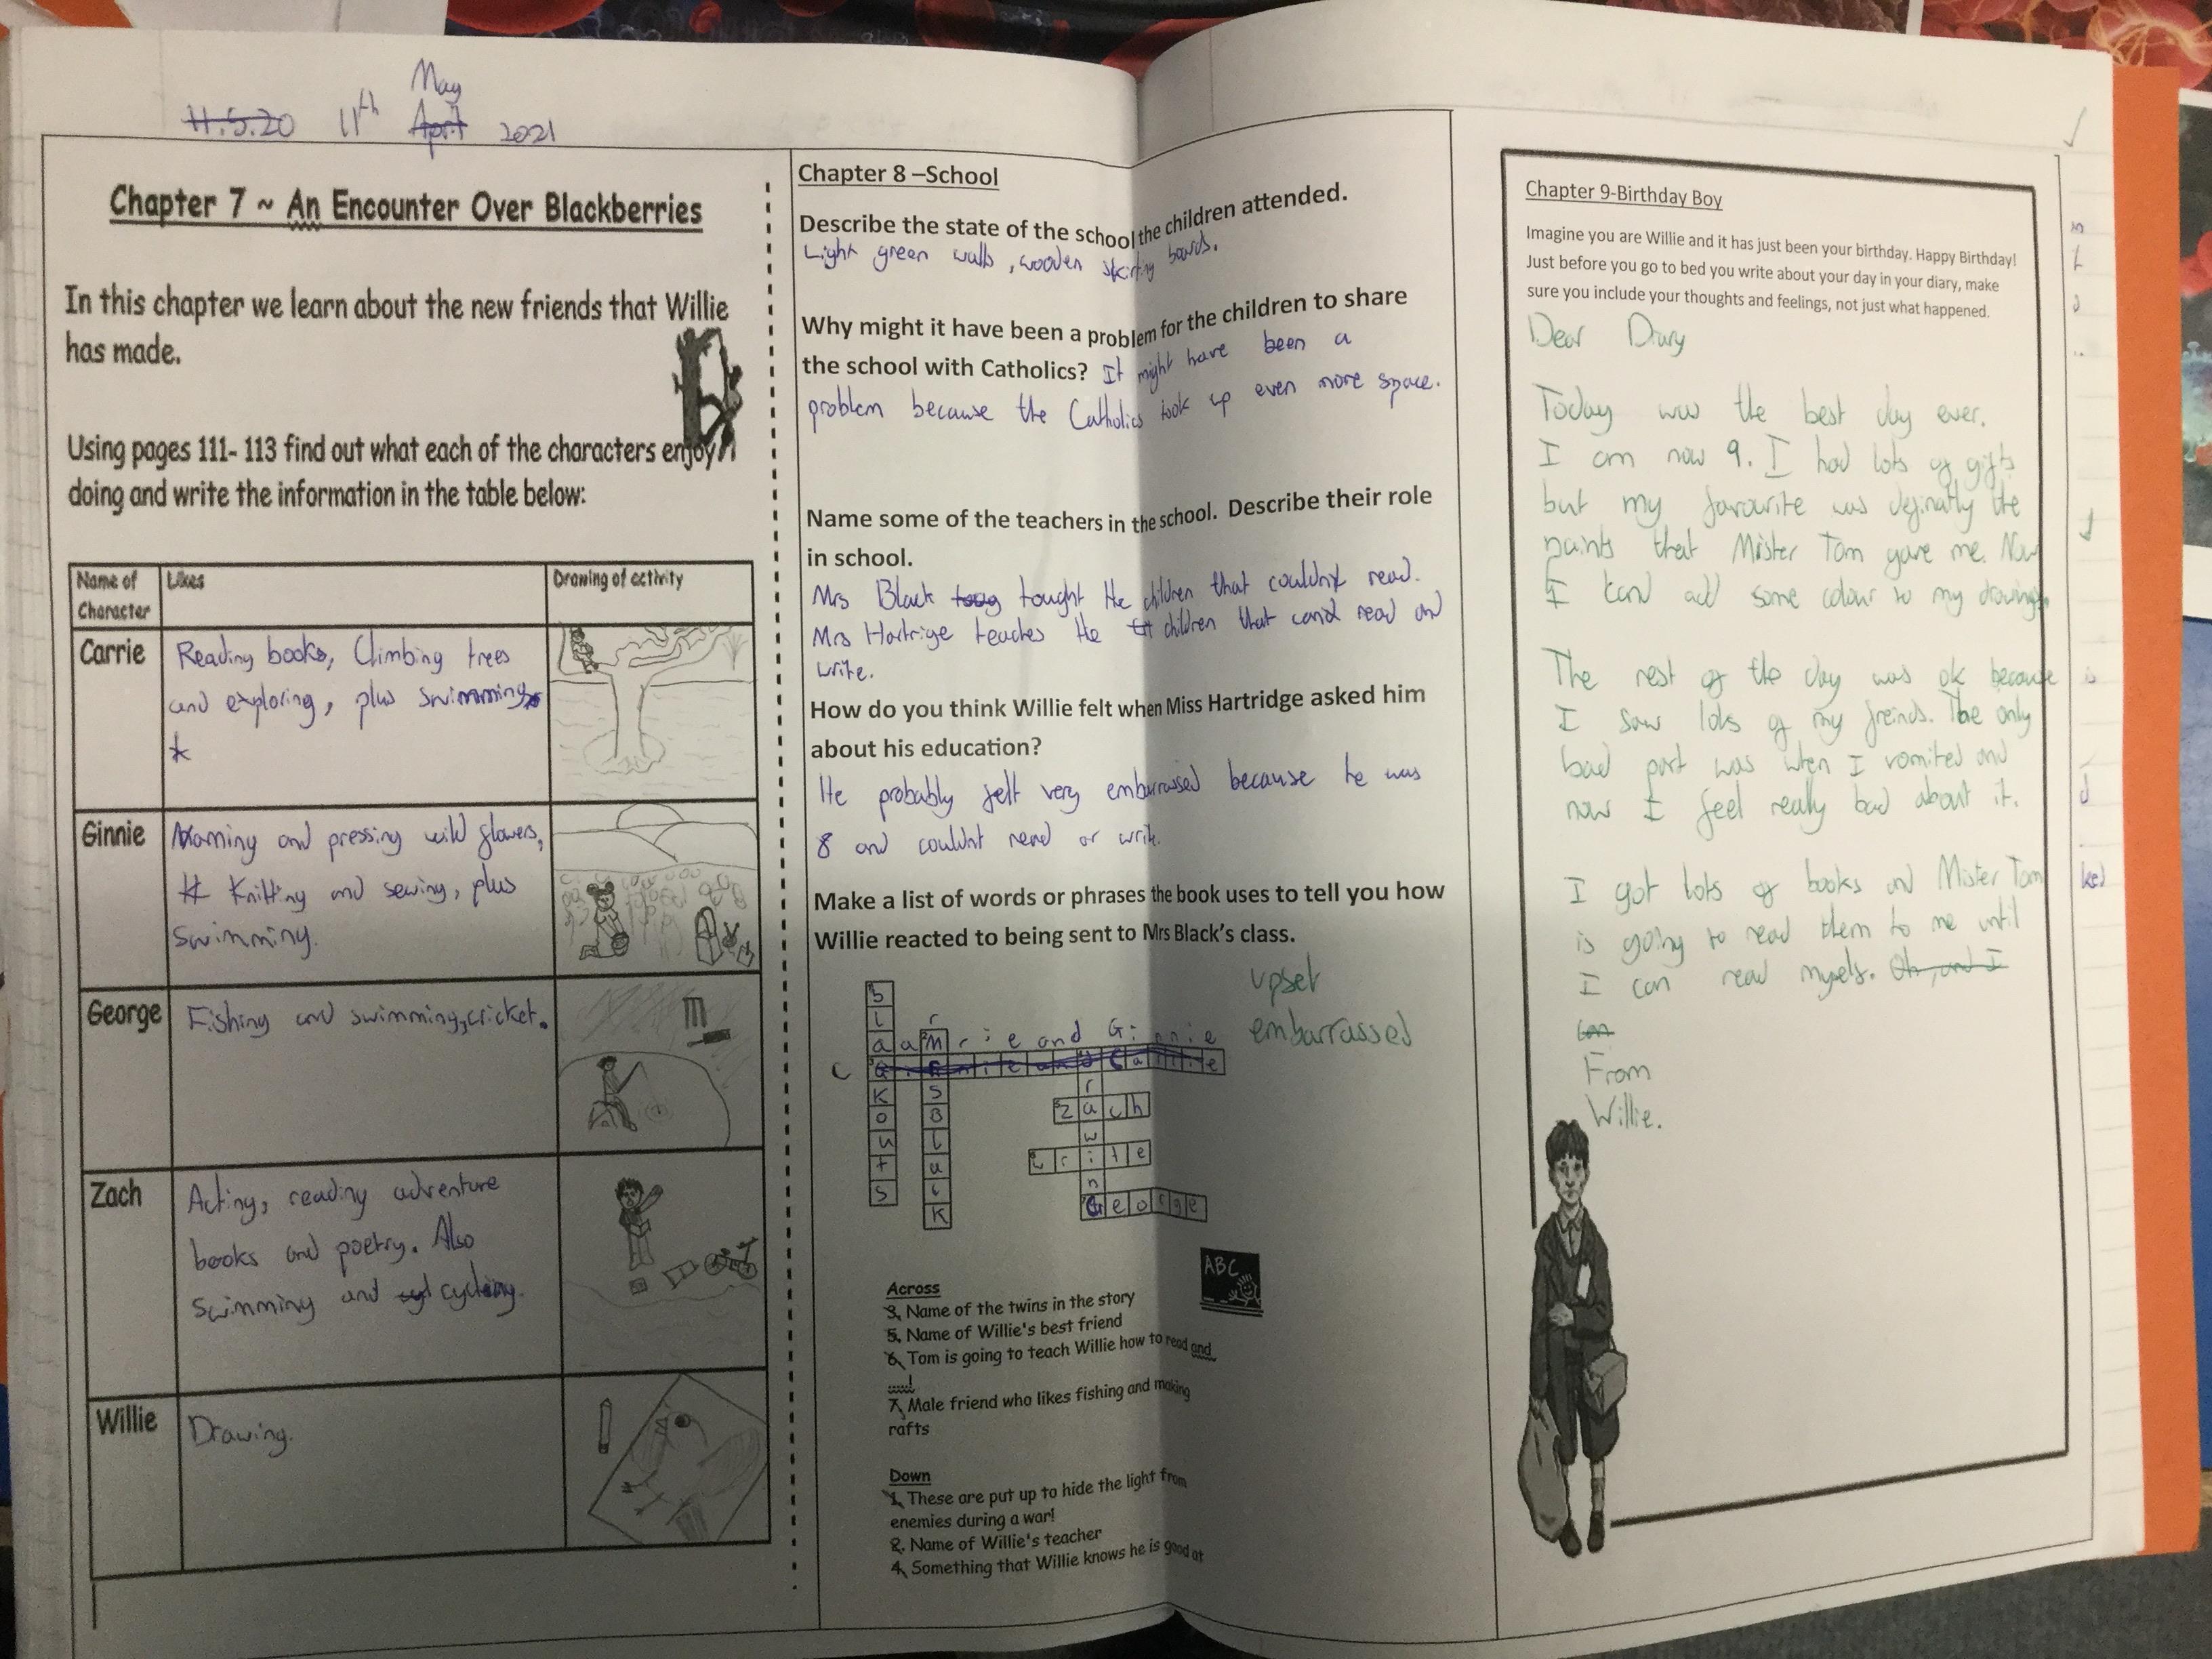 11.5.20 11th April May 2021
Chapter 7 ~ An Encounter Over Blackberries
In this chapter we learn about the new friends that Willie
has made.
Using pages 111- 113 find out what each of the characters enjoy
doing and write the information in the table below:
Name of
Character
Likes
Drawing of activity
Carrie
Reading books, Climbing trees
and exploring, plus swimming
Ginnie
Naming and pressing wild flowers,
Knitting and sewing, plus
swimming.
George
Fishing and swimming, cricket.
Zach
Acting, reading adventure
books and poetry. Also
swimming and cycling.
Willie
Drawing.
Chapter 8 –School
Describe the state of the school the children attended.
Light green walls, wooden skirting boards.
Why might it have been a problem for the children to share
the school with Catholics? It might have been a
problem because the Catholics took up even more space.
Name some of the teachers in the school. Describe their role
in school.
Mrs Black toug tought the children that couldn't read.
Mrs Hartrige teaches the children that can read and
write.
How do you think Willie felt when Miss Hartridge asked him
about his education?
He probably felt very embarrassed because he was
8 and couldnt read or write.
Make a list of words or phrases the book uses to tell you how
Willie reacted to being sent to Mrs Black's class.
upset
embarrassed
blackouts
mrsBlack
Carrie and Ginnie
Ginnie and Carrie
drawing
zach
write
George
ABC
Across
3. Name of the twins in the story
5. Name of Willie's best friend
6. Tom is going to teach Willie how to read and
.....!
7. Male friend who likes fishing and making
rafts
Down
1. These are put up to hide the light from
enemies during a war!
2. Name of Willie's teacher
4. Something that Willie knows he is good at
Chapter 9-Birthday Boy
Imagine you are Willie and it has just been your birthday. Happy Birthday!
Just before you go to bed you write about your day in your diary, make
sure you include your thoughts and feelings, not just what happened.
Dear Diary
Today was the best day ever.
I am now 9. I had lots of gifts
but my favourite was definatly the
paints that Mister Tom gave me. Now
I can add some colour to my drawings
The rest of the day was ok because
I saw lots of my freinds. The only
bad part was when I vomited and
now I feel really bad about it.
I got lots of books and Mister Tom
is going to read them to me until
I can read myself. Oh, and I
can
From
Willie.
ked